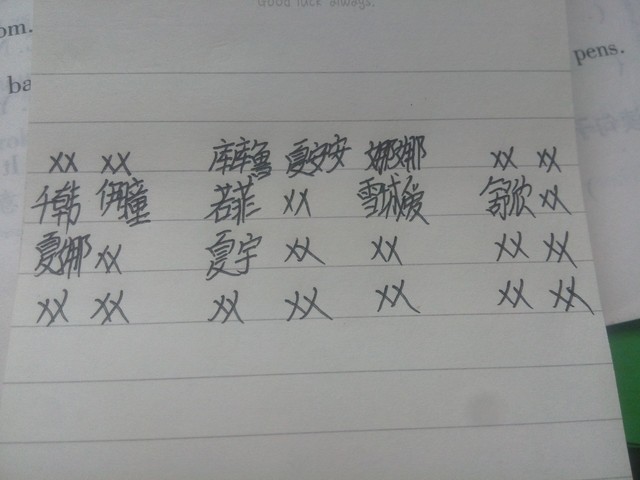 Good luck always.
om.
ba
pens.
xx xx 库库鱼 夏安安 娜娜 xx xx
千韩 伊瞳 若菲 xx 雪城爱 舒欣 xx
夏娜 xx 夏宇 xx xx xx xx
xx xx xx xx xx xx xx